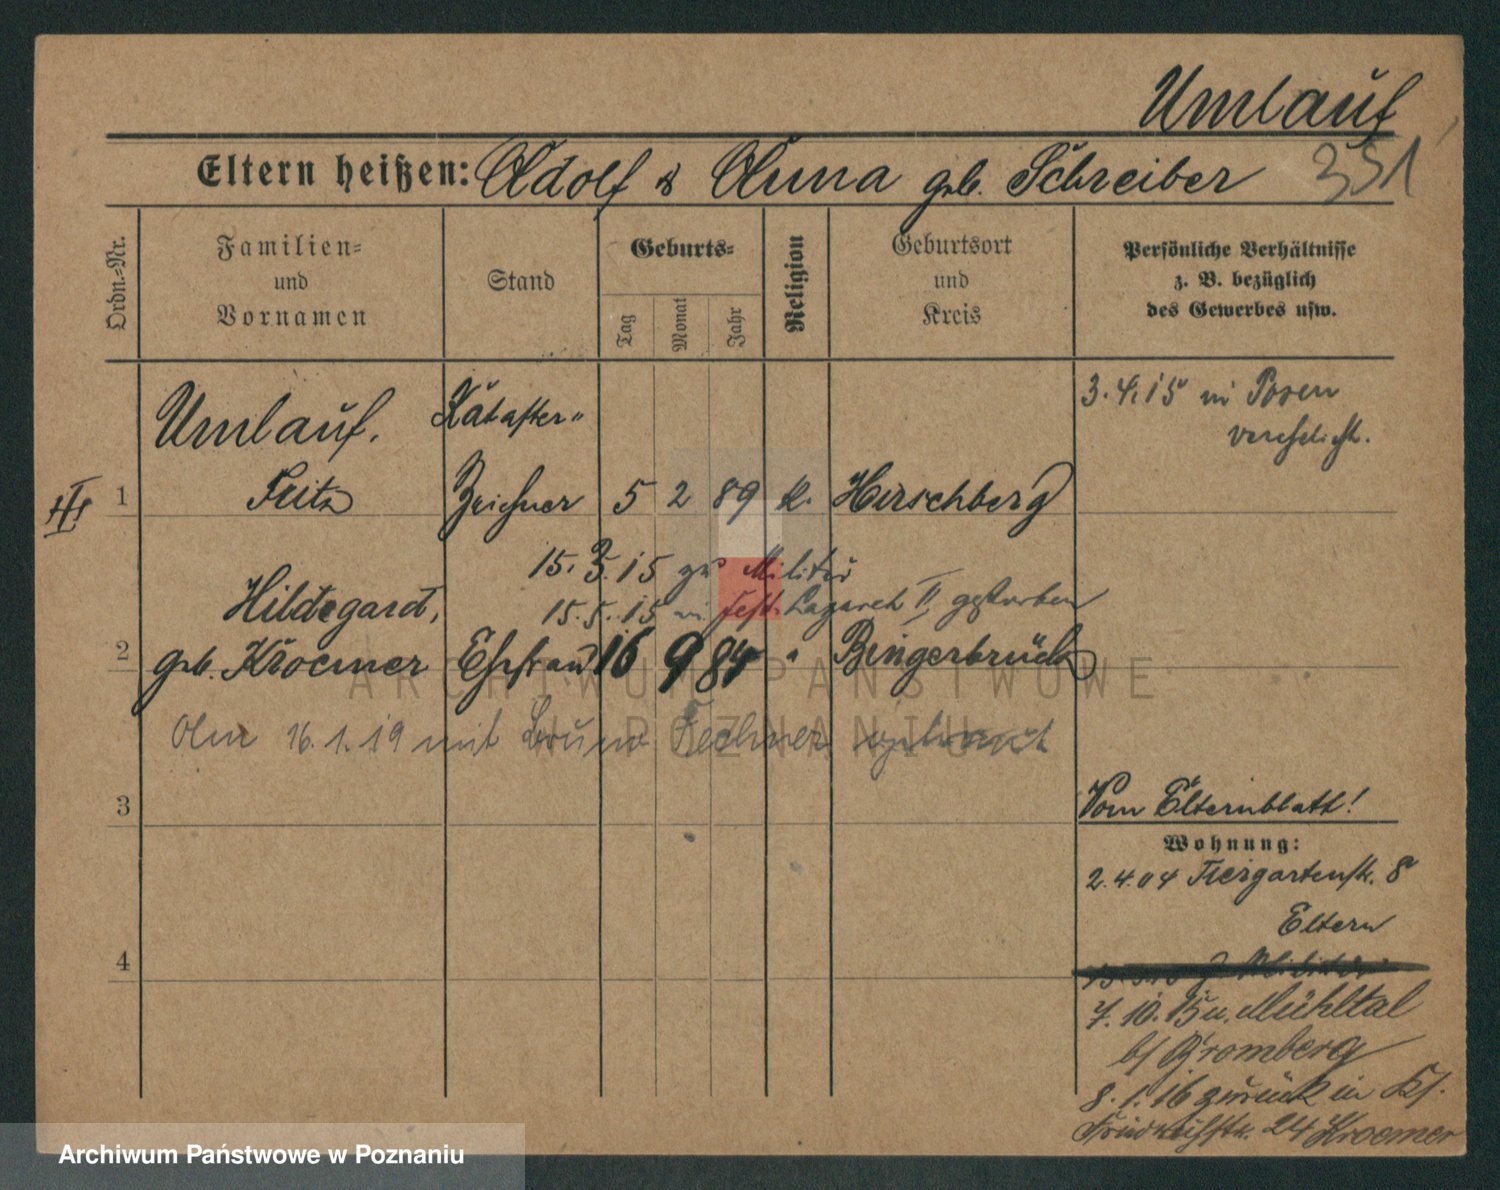 Umlauf
351
Eltern heißen: Adolf & Anna geb. Schreiber
Ordn.-Nr.
Familien-
und
Vornamen
Stand
Geburts-
Tag
Monat
Jahr
Religion
Geburtsort
und
Kreis
Persönliche Verhältnisse
z. B. bezüglich
des Gewerbes usw.
3.4.15 in Posen
verehelicht.
Umlauf. Kataster-
III 1 Fritz Zeichner 5 2 89 k. Hirschberg
15.3.15 zu Militär
15.5.15 in Fest. Lazarett II gestorben
Hildegard,
2 geb. Kroemer Ehefrau 16 9 84 " Bingerbrück
Am 16.1.19 mit Bruno Fechner
3
Vom Elternblatt!
Wohnung:
2.4.04 Tiergartenstr. 8
Eltern
4
7.10.15 n. Mühltal
b/ Bromberg
8.1.16 zurück in
24 Kroemer
ARCHIWUM PAŃSTWOWE
W POZNANIU
Archiwum Państwowe w Poznaniu